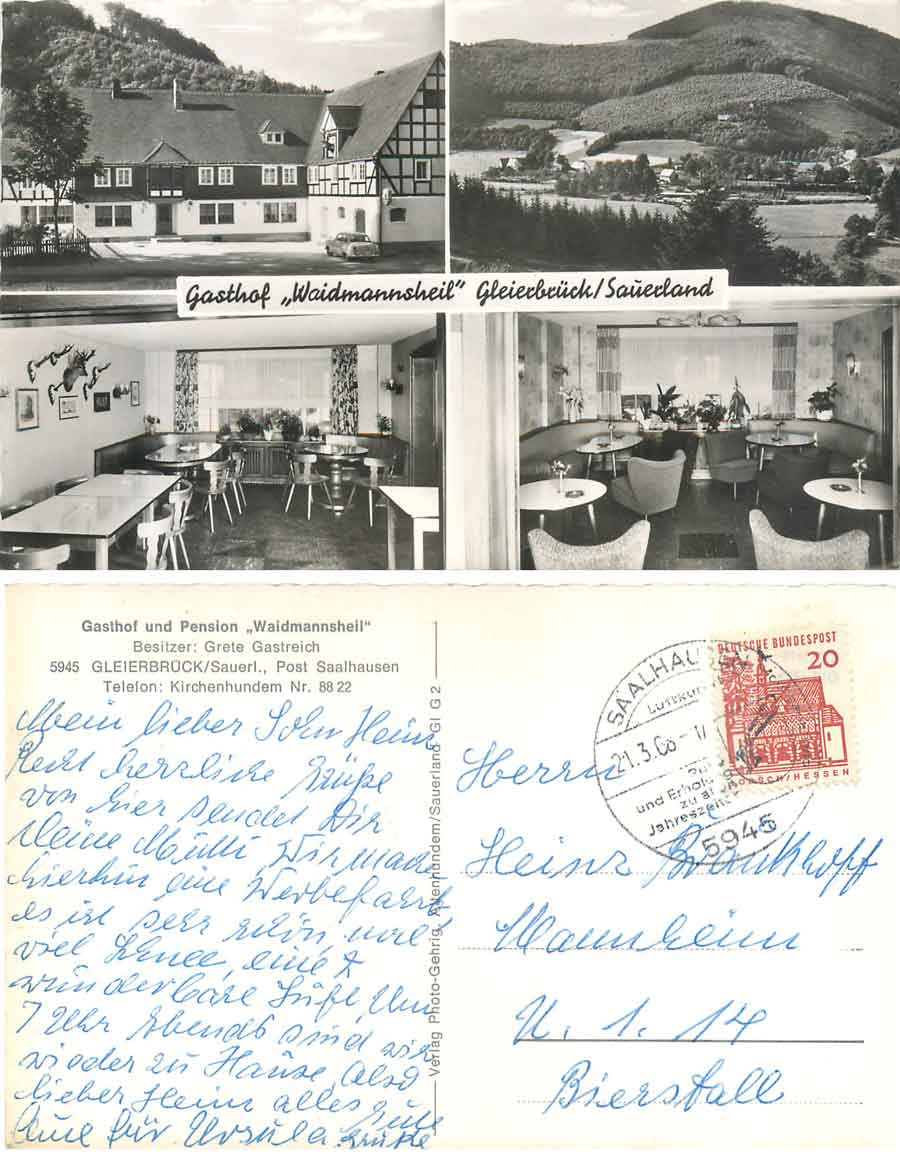 Gasthof „Waidmannsheil" Gleierbrück/Sauerland
Gasthof und Pension „Waidmannsheil"
Besitzer: Grete Gastreich
5945 GLEIERBRÜCK/Sauerl., Post Saalhausen
Telefon: Kirchenhundem Nr. 88 22
Mein lieber Sohn Heinz
Recht herzliche Grüße
von hier sendet Dir
Deine Mutti, Wir machen
hierhin eine Werbefahrt,
es ist sehr schön, noch
viel Schnee, eine
wunderbare Luft, Um
7 Uhr Abends sind wir
wieder zu Hause, Also
lieber Heinz alles gute
für Ursula Grüße
Verlag Photo-Gehrig, Altenhundem/Sauerland GI G 2
SAALHAUSEN
Luftkur
21.3.68
und Erhol
zu
Jahreszeit
5945
DEUTSCHE BUNDESPOST
20
LORSCH/HESSEN
Herrn
Heinz Brinkhoff
Mannheim
U. 1. 14
Bierstall